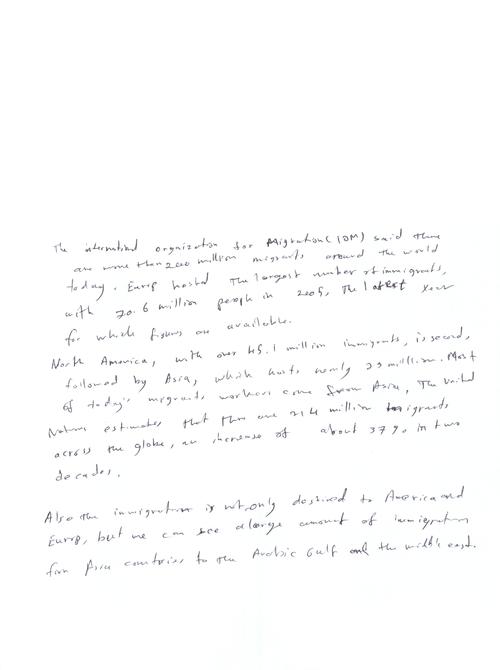 The international orgnization for Migration (IOM) said there
are more than 200 million migrants around the world
today. Europ hosted The largest number of immigrants,
with 70.6 million people in 2005, The latest year
for which figures are available.
North America, with over 45.1 million immigrants, is second,
followed by Asia, which hosts nearly 25 million. Most
of today's migrants workers come from Asia, The United
Nations estimates that there are 214 million migrants
across the globe, an increase of about 37% in two
decades.
Also the immigration is not only destined to America and
Europ, but we can see a large amount of immigration
from Asia countries to the Arabic Gulf and the middle east.